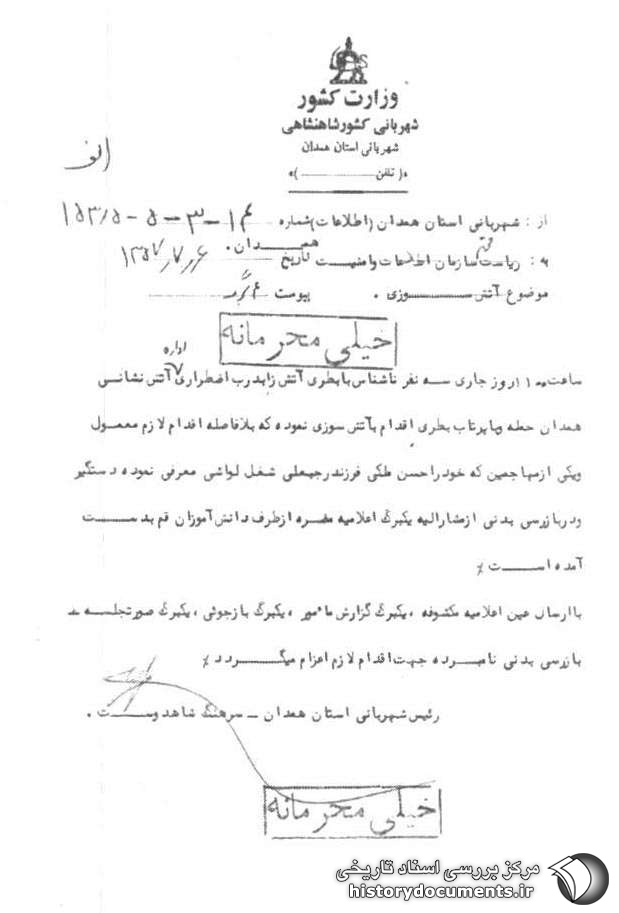 وزارت کشور
شهربانی کشور شاهنشاهی
شهربانی استان همدان
«( تلفن )»
از : شهربانی استان همدان (اطلاعات) شماره ۱۴-۳-۵-
به : ریاست سازمان اطلاعات و امنیت همدان . تاریخ ۱۳۵۷/۷/۶
موضوع آتش سوزی . پیوست ۴ برگ
خیلی محرمانه
اداره
ساعت ۱۱۰۰ روز جاری سه نفر ناشناس با بطری آتش زا بدرب اضطراری آتش نشانی
همدان حمله و با پرتاب بطری اقدام بآتش سوزی نموده که بلافاصله اقدام لازم معمول
ویکی از مهاجمین که خود را حسن ملکی فرزند رجبعلی شغل لواشی معرفی نموده دستگیر
ودر بازرسی بدنی از مشارالیه یکبرگ اعلامیه مضره از طرف دانش آموزان قم بدست
آمده است ٪
با ارسال عین اعلامیه مکشوفه ، یکبرگ گزارش مأمور ، یکبرگ بازجوئی ، یکبرگ صورتجلسه
بازرسی بدنی نامبرده جهت اقدام لازم اعزام میگردد ٪
رئیس شهربانی استان همدان ـ سرهنگ شاهدوست .
خیلی محرمانه
مرکز بررسی اسناد تاریخی
historydocuments.ir